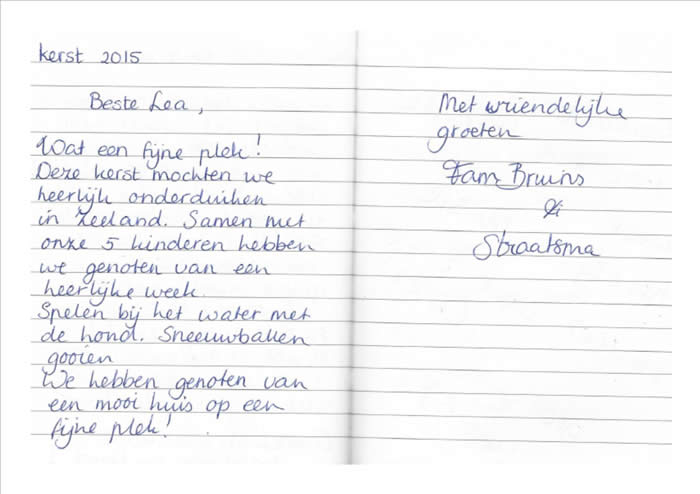 kerst 2015
Beste Lea,
Wat een fijne plek!
Deze kerst mochten we
heerlijk onderduiken
in Zeeland. Samen met
onze 5 kinderen hebben
we genoten van een
heerlijke week.
Spelen bij het water met
de hond. Sneeuwballen
gooien
We hebben genoten van
een mooi huis op een
fijne plek!
Met vriendelijke
groeten
Fam Bruins
&
Straatsma